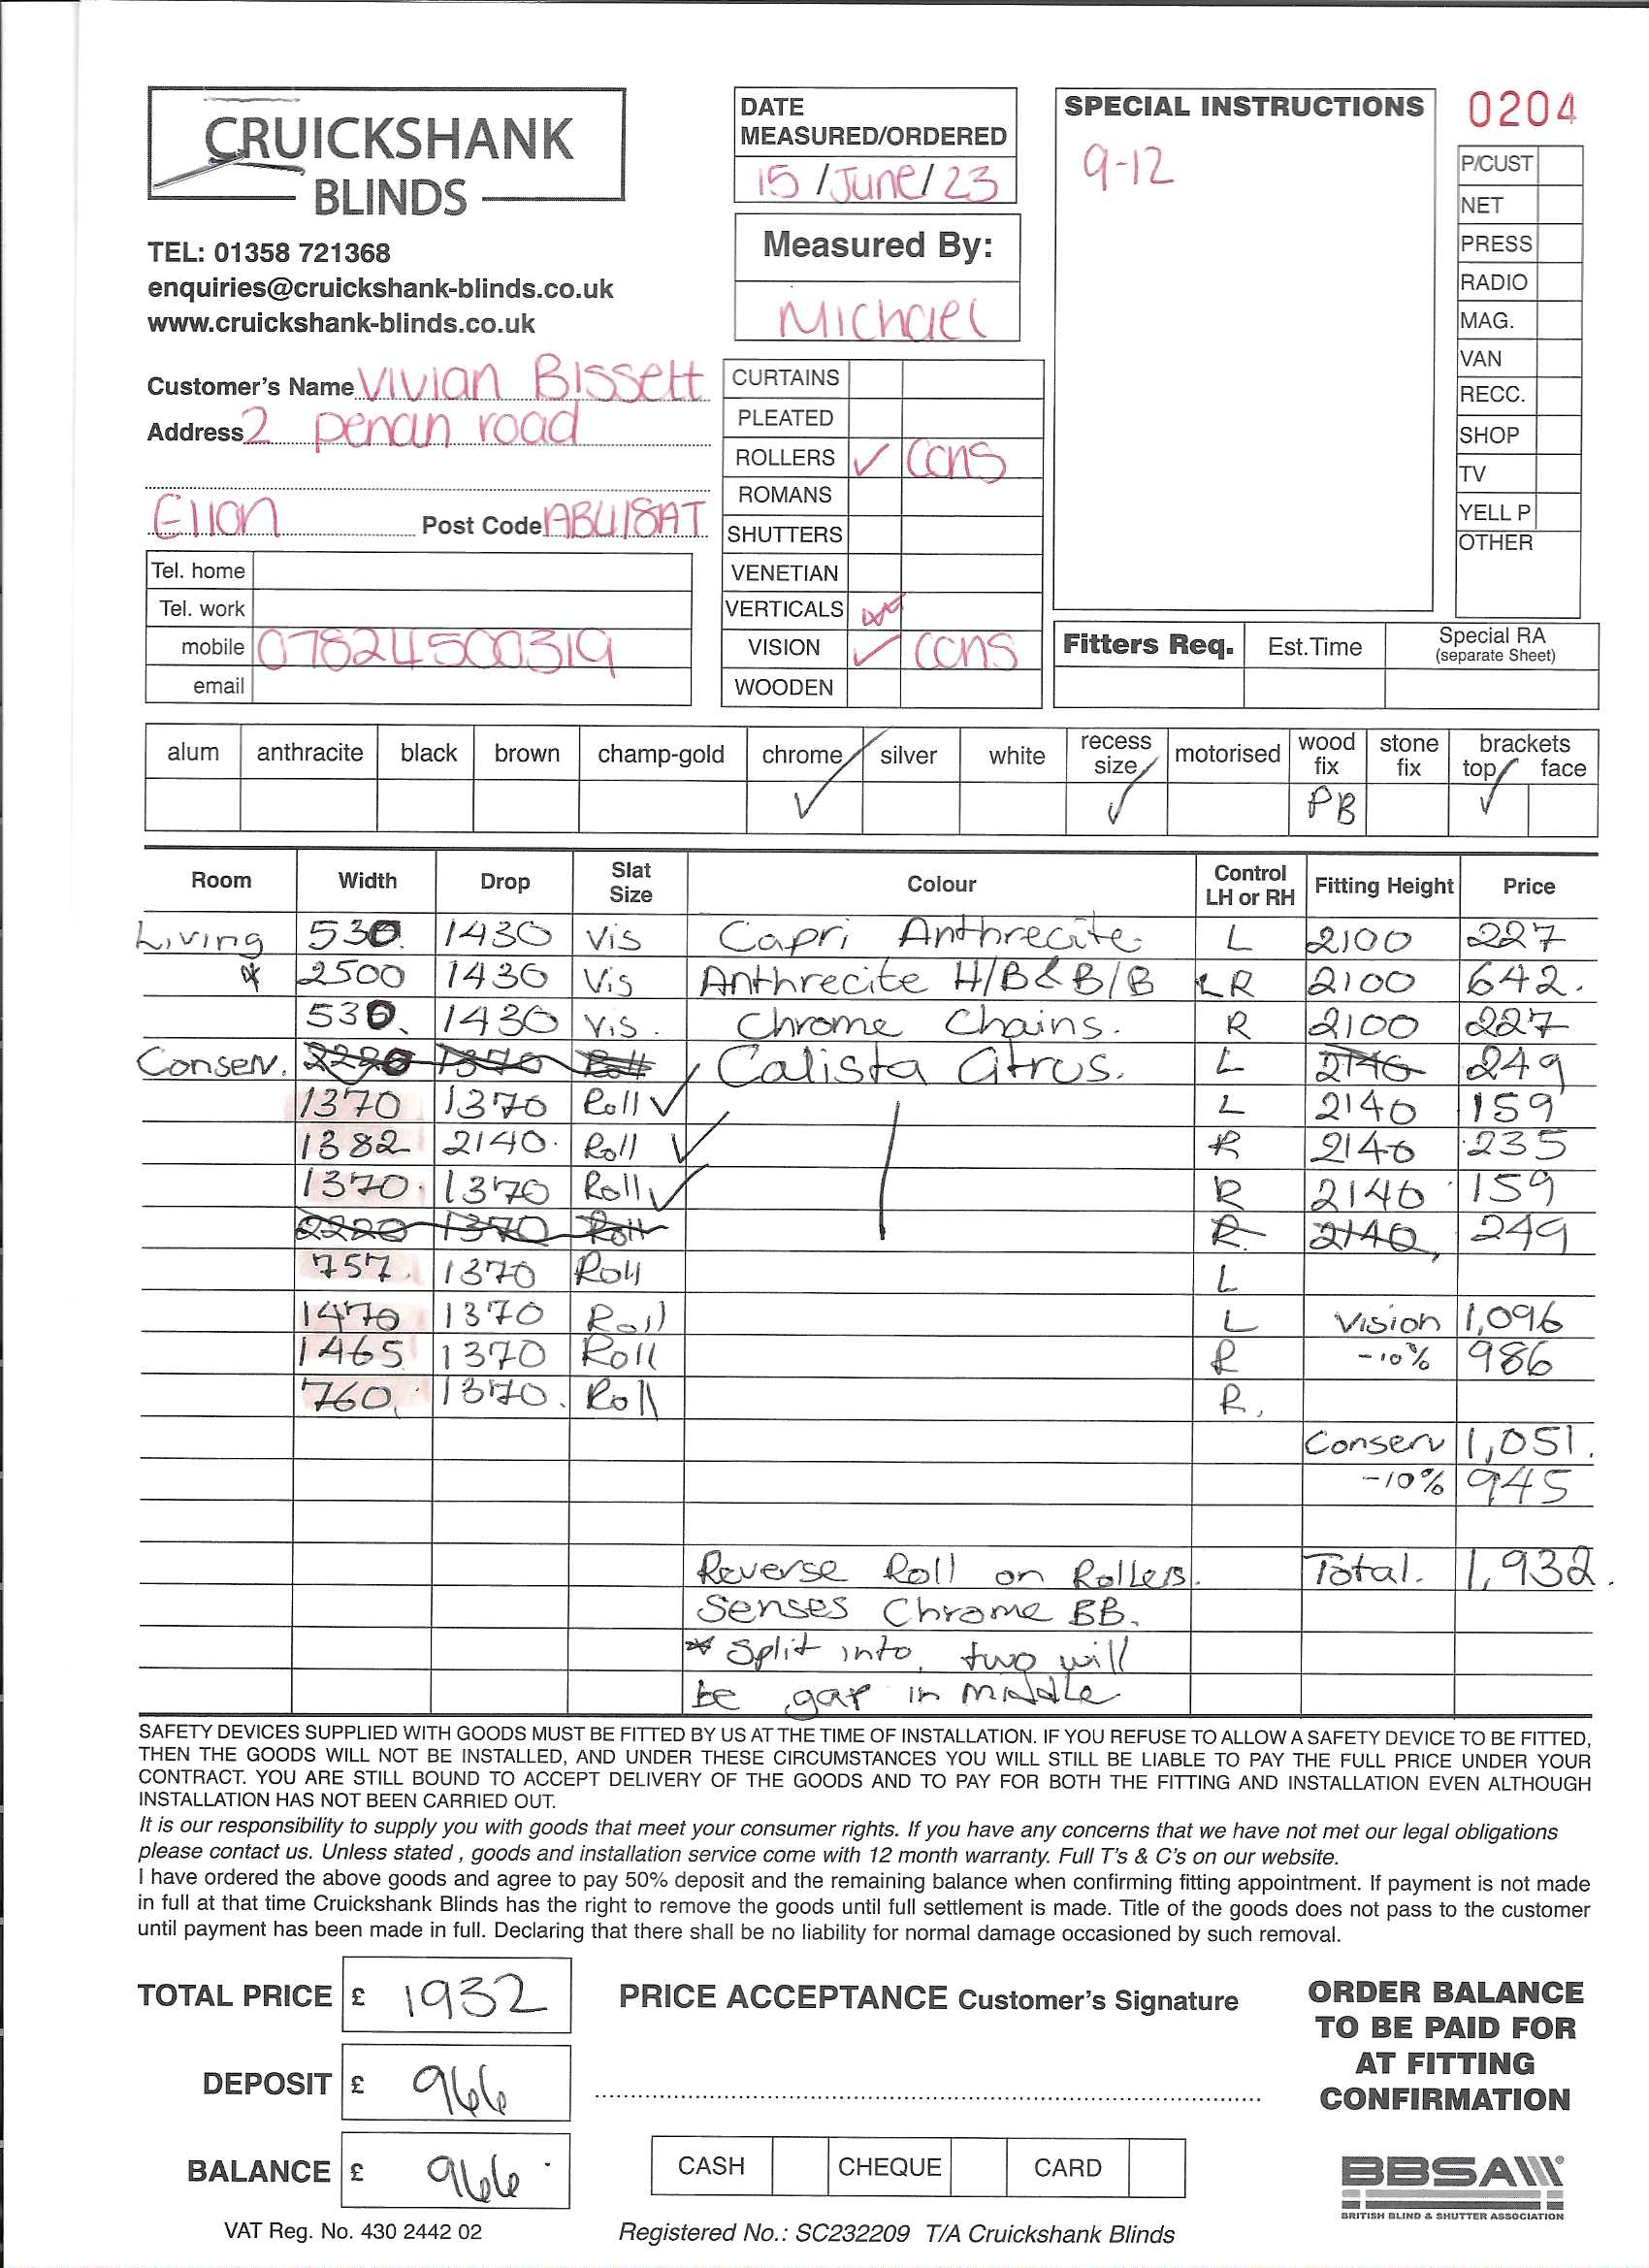 CRUICKSHANK
BLINDS
TEL: 01358 721368
enquiries@cruickshank-blinds.co.uk
www.cruickshank-blinds.co.uk
DATE
MEASURED/ORDERED
15 /June/ 23
Measured By:
Michael
SPECIAL INSTRUCTIONS
9-12
0204
P/CUST
NET
PRESS
RADIO
MAG.
VAN
RECC.
SHOP
TV
YELL P
OTHER
Customer's Name Vivian Bissett
Address 2 penan road
Ellon Post Code AB418AT
Tel. home
Tel. work
mobile 07824500319
email
CURTAINS
PLEATED
ROLLERS ✓ CCNS
ROMANS
SHUTTERS
VENETIAN
VERTICALS
VISION ✓ CCNS
WOODEN
Fitters Req. Est.Time Special RA
(separate Sheet)
alum anthracite black brown champ-gold chrome silver white recess size motorised wood fix stone fix brackets top face
✓ ✓ PB ✓
Room Width Drop Slat Size Colour Control LH or RH Fitting Height Price
Living 530 1430 Vis Capri Anthrecite L 2100 227
* 2500 1430 Vis Anthrecite H/B & B/B LR 2100 642.
530 1430 Vis. Chrome Chains. R 2100 227
Conserv. 2220 1370 Roll Calista Citrus. L 2140 249
1370 1370 Roll ✓ L 2140 159
1382 2140 Roll ✓ R 2140 235
1370 1370 Roll ✓ R 2140 159
2220 1370 Roll R 2140 249
757 1370 Roll L
1470 1370 Roll L Vision 1,096
1465 1370 Roll R -10% 986
760 1370 Roll R.
Conserv 1,051.
-10% 945
Reverse Roll on Rollers. Total. 1,932.
Senses Chrome BB.
* Split into two will
be gap in middle
SAFETY DEVICES SUPPLIED WITH GOODS MUST BE FITTED BY US AT THE TIME OF INSTALLATION. IF YOU REFUSE TO ALLOW A SAFETY DEVICE TO BE FITTED,
THEN THE GOODS WILL NOT BE INSTALLED, AND UNDER THESE CIRCUMSTANCES YOU WILL STILL BE LIABLE TO PAY THE FULL PRICE UNDER YOUR
CONTRACT. YOU ARE STILL BOUND TO ACCEPT DELIVERY OF THE GOODS AND TO PAY FOR BOTH THE FITTING AND INSTALLATION EVEN ALTHOUGH
INSTALLATION HAS NOT BEEN CARRIED OUT.
It is our responsibility to supply you with goods that meet your consumer rights. If you have any concerns that we have not met our legal obligations
please contact us. Unless stated , goods and installation service come with 12 month warranty. Full T's & C's on our website.
I have ordered the above goods and agree to pay 50% deposit and the remaining balance when confirming fitting appointment. If payment is not made
in full at that time Cruickshank Blinds has the right to remove the goods until full settlement is made. Title of the goods does not pass to the customer
until payment has been made in full. Declaring that there shall be no liability for normal damage occasioned by such removal.
TOTAL PRICE £ 1932
DEPOSIT £ 966
BALANCE £ 966
PRICE ACCEPTANCE Customer's Signature
CASH CHEQUE CARD
ORDER BALANCE
TO BE PAID FOR
AT FITTING
CONFIRMATION
BBSA
BRITISH BLIND & SHUTTER ASSOCIATION
VAT Reg. No. 430 2442 02
Registered No.: SC232209 T/A Cruickshank Blinds